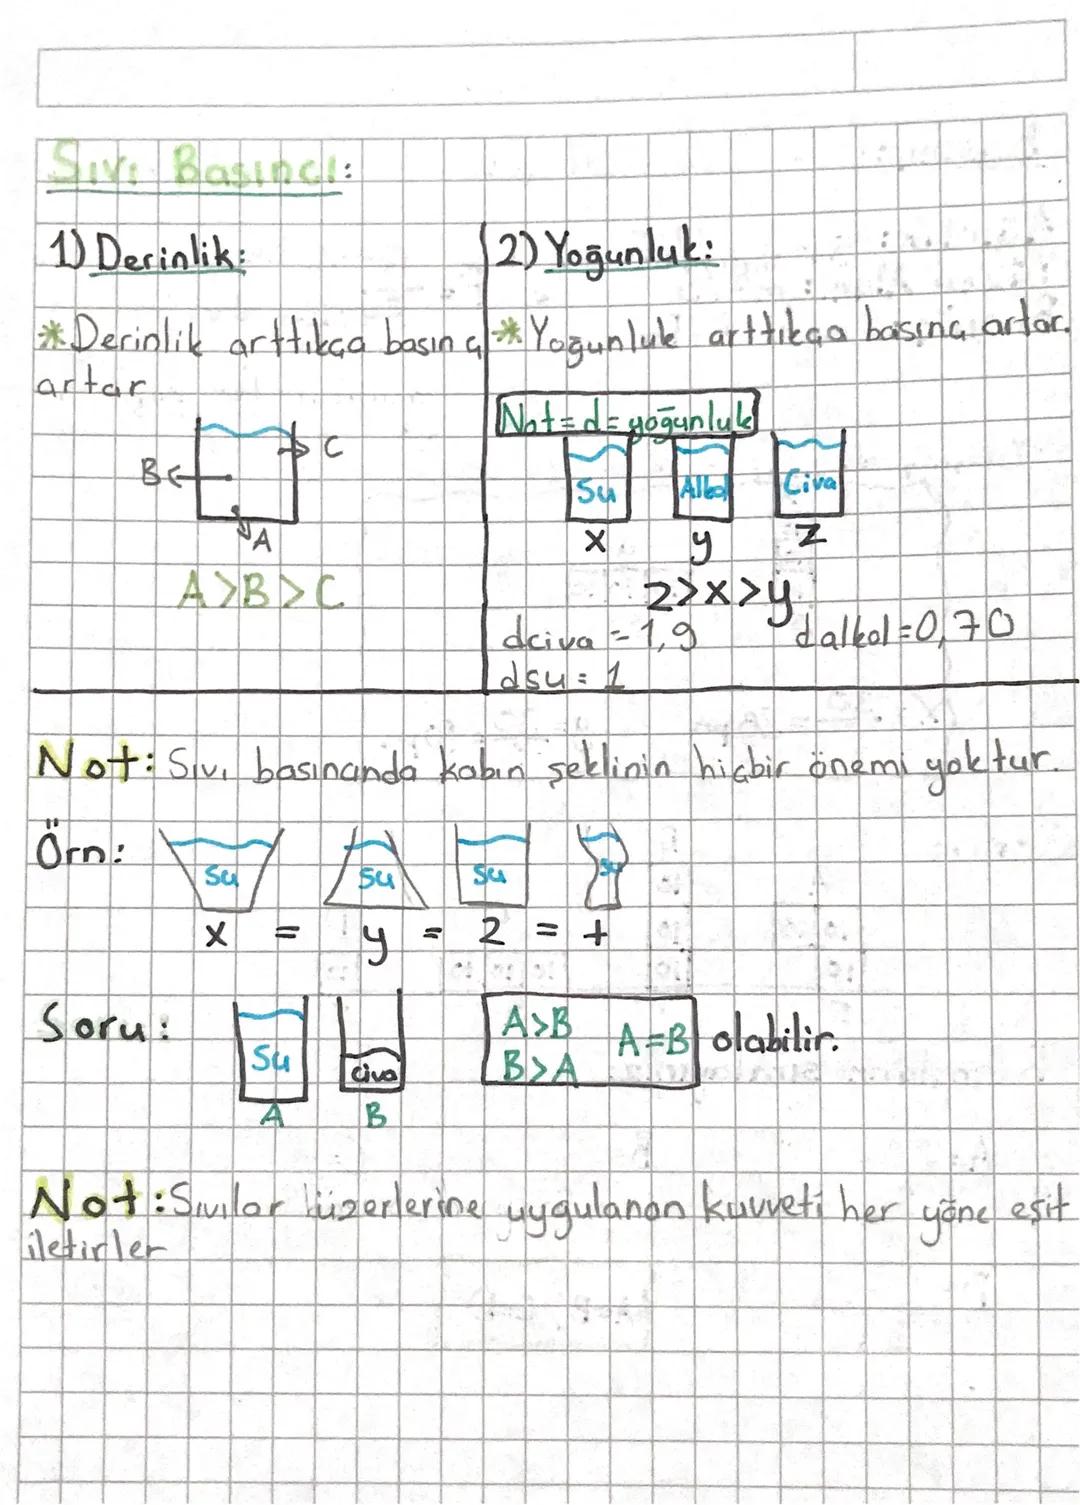 Sıvı Basıncı:
1) Derinlik:
* Derinlik arttıkça basınç
artar
B
C
A
A>B>C
2) Yoğunluk:
* Yoğunluk arttıkça basınç artar.
Not = d = yoğunluk
Su
Alkol
Civa
x
y
z
z>x>y
dciva = 1,9
dalkol = 0,70
dsu = 1
Not: Sıvı basıncında kabın şeklinin hiçbir önemi yoktur.
Örn:
Su
Su
Su
Su
x = y = z = t
Soru:
Su
civa
A
B
A>B
A=B olabilir.
B>A
Not: Sıvılar üzerlerine uygulanan kuvveti her yöne eşit
iletirler